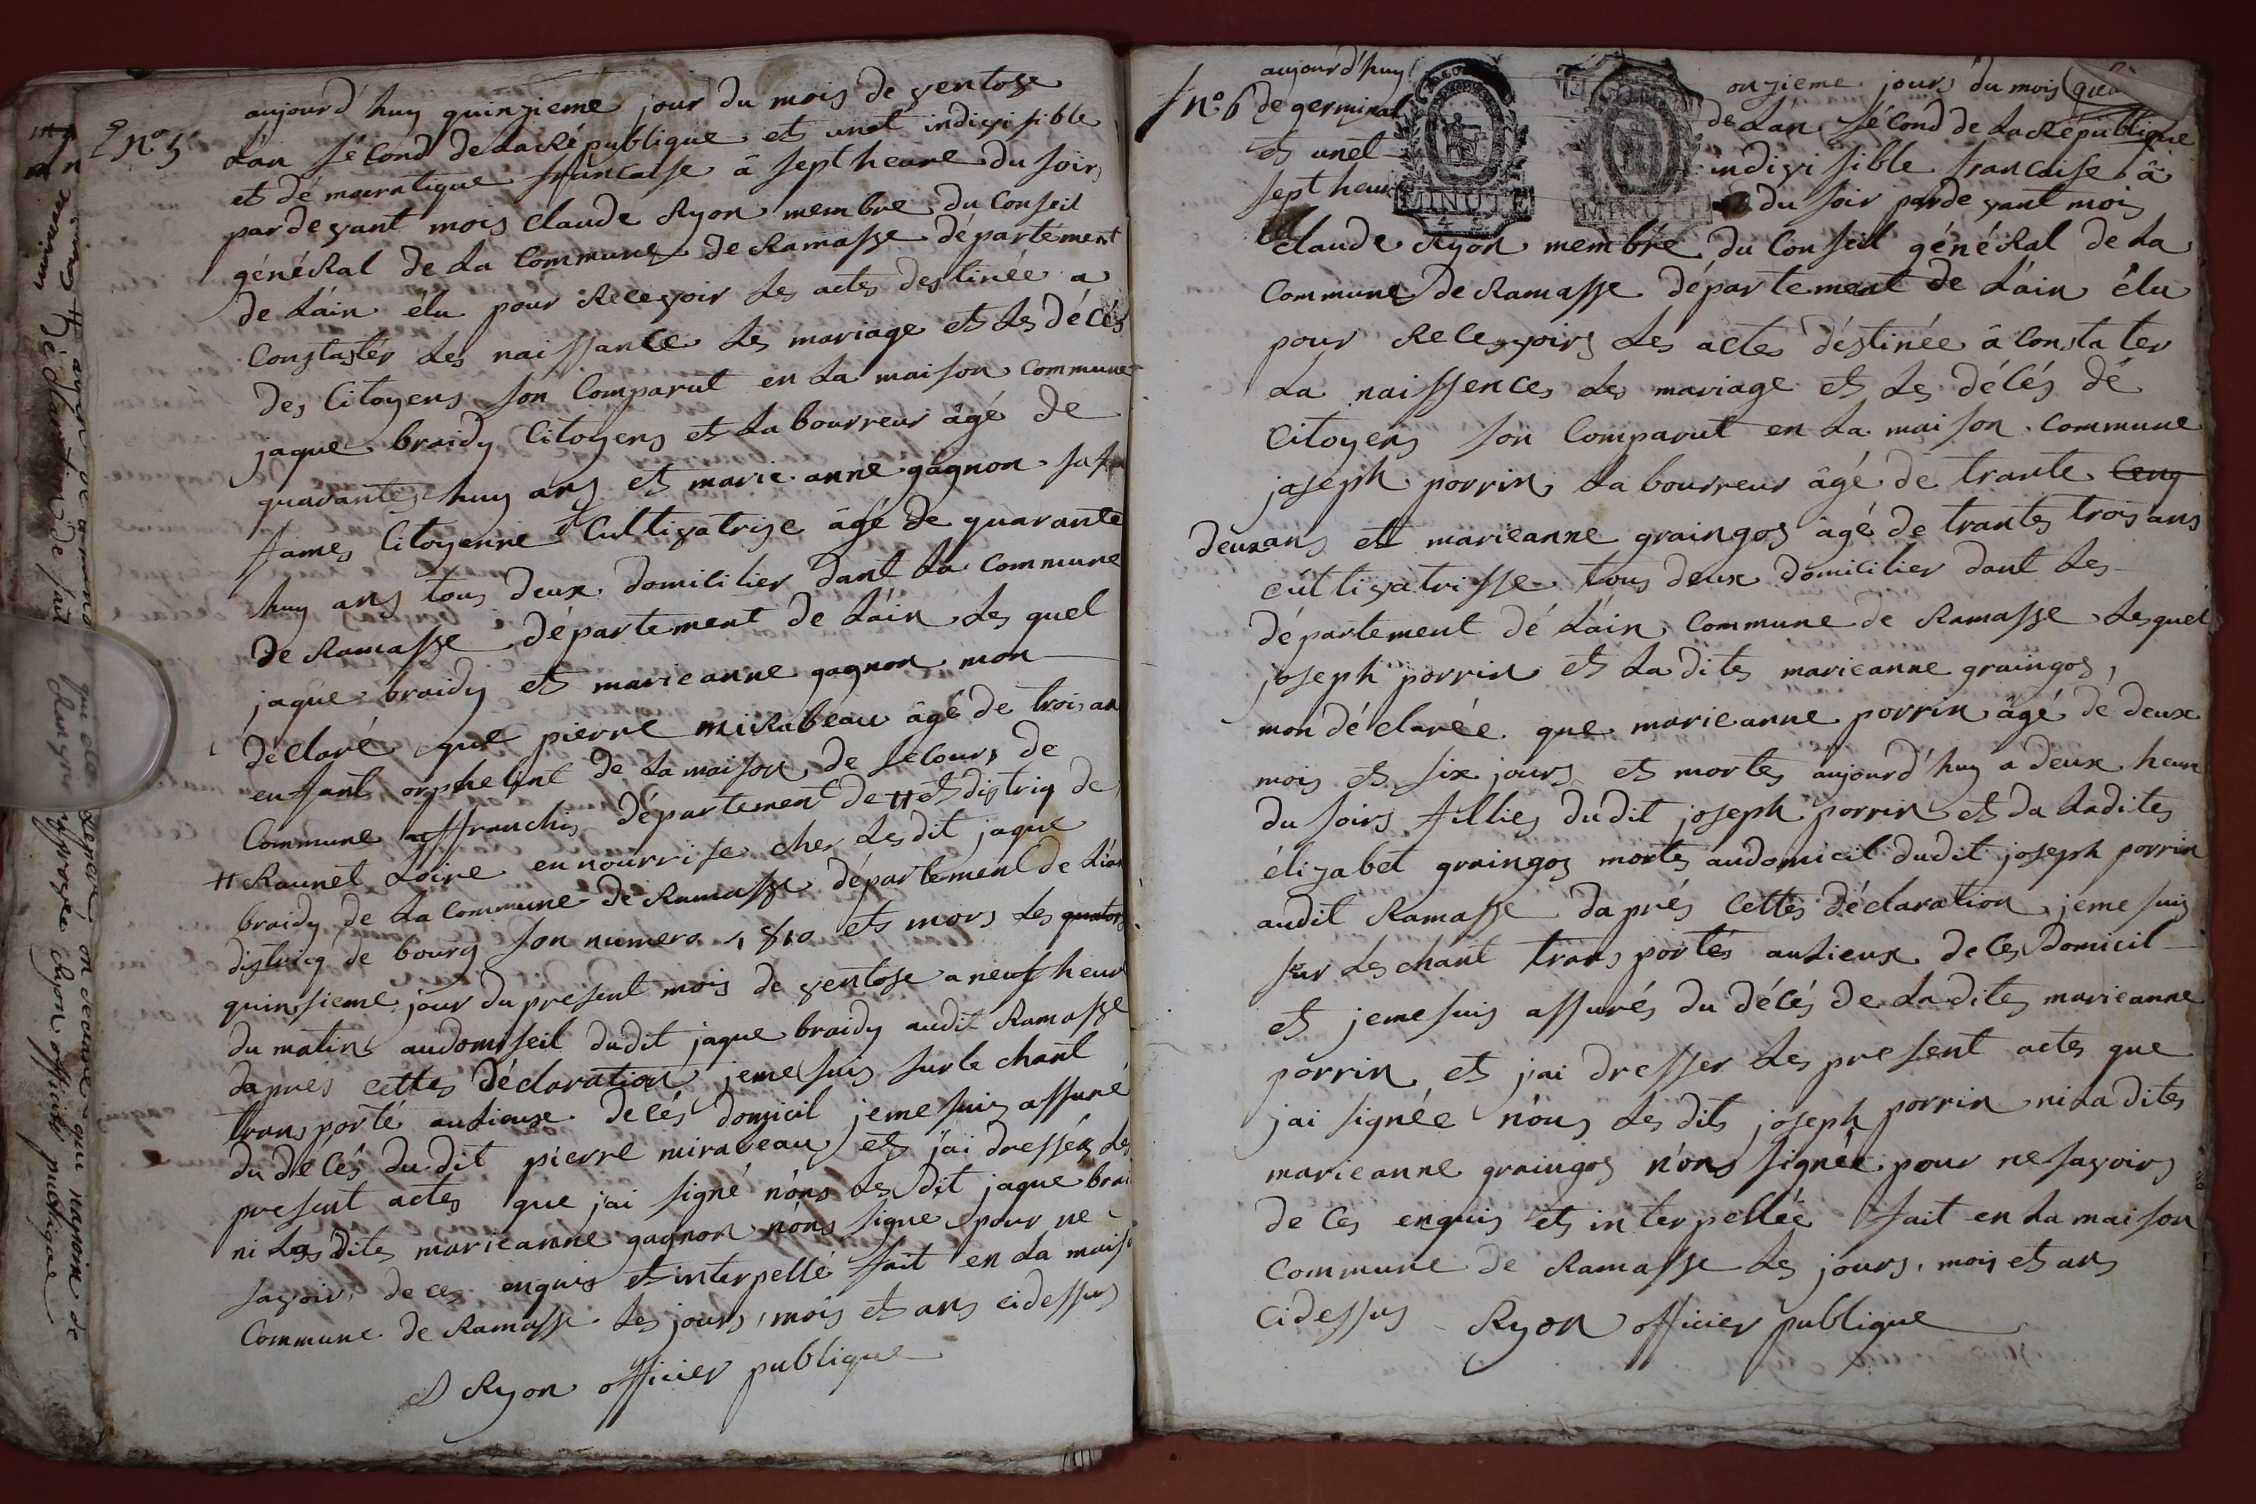 N° 5
aujourd'huy quinzieme jour du mois de ventose
Lan sécond de La République et unet indivisible
et démocratique francaise â sept heure du soir
pardevant mois claude Ryon membre du Conseil
général de La Commune de Ramasse département
de Láin élu pour Recevoir Les actes destinée a
Constaster Les naissance Les mariage et Les décés
des Citoyens son Comparut en La maison commune
jaque braidy Citoyens et Labourreur âgé de
quarante huy ans et marie anne gagnon sa
fames Citoyenne Cultivatrise âgé de quarante
huy ans tous deux domicilier dant La Commune
de Ramasse département de Láin Les quel
jaque braidy et marieanne gagnon mon
déClaré que pierre miRabeau âgé de trois an
enfant orphelint de La maison de secours de
Commune affranchis département de # et distriq de
# Raunet Loire en nourrise cher Les dit jaque
braidy de La Commune de Ramasse département de Láin
distriq de bourg son numero 1810 et mors Les quators
quinsieme jour du present mois de ventose a neuf heur
du matin audomiseil dudit jaque braidy audit Ramasse
daprés cettes Déclaration jeme suis sur le chant
transporté aulieuxe delés domicil jeme suis assuré
du decés dudit pierre miraveau et j'ai dressés Les
present actes que j'ai signé nóns Les dit jaque brai
ni Las dites marieanne gagnon nóns signe pour ne
savoir de ces enquis et interpellé fait en La mais
Commune de Ramasse Les jours, mois et ans cidessus
Ryon officier publique
N° 6
aujourd'huy onzieme jours du mois
de germinal de Lán sécond de La République
et unet indivisible francaise â
sept heur du soir pardevant mois
Claude Ryon membre du Conseil général de La
Commune de Ramasse département de Láin élu
pour Recevoirs Les actes déstinée â Constater
La naissences Les mariage et Les décés dé
Citoyens son Comparut en La maison commune
joseph porrin Labourreur âgé de trante Cenq
deuxans et marieanne graingos âgé de trantes trois ans
cultivatrisse tous deux domicilier dant Les
département dé Láin Commune de Ramasse Lesquel
joseph porrin et La dites marieanne graingos,
mon déclarée que marieanne porrin âgé de deux
mois et six jours et mortes aujourd'huy a deux heur
du soirs fillies dudit joseph porrin et da Ladites
élizabet graingos mortes audomicil dudit joseph porrin
audit Ramasse daprés Cettes déclaration jeme suis
sur Les chant transportés aulieux deles Domicil
et jeme suis assurés du décés de Ladites marieanne
porrin et j'ai dresser Les present actes que
jai signée nóns Les dits joseph porrin ni La dites
marieanne graingos nóns signée pour ne savoirs
de Ces enquis et interpellée fait en La maison
Commune de Ramasse Les jours, mois et ans
Cidessus Ryon officier publique
MINUTE
MINUTE